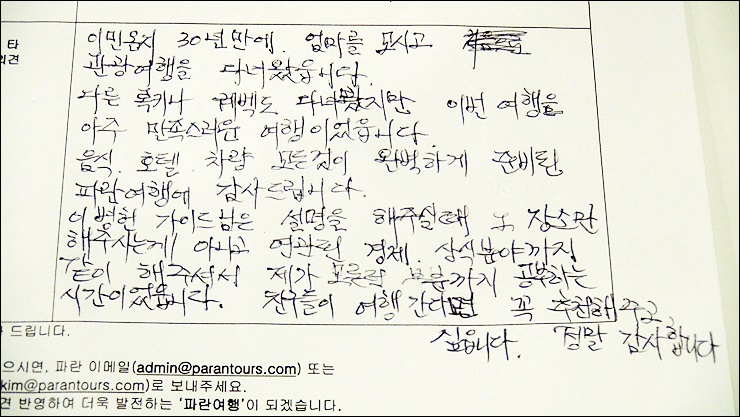 이민온지 30년만에. 엄마를 모시고
타
견
관광여행을 다녀왔읍니다.
다른 록키나 퀘벡도 다녀왔지만 이번 여행을
아주 만족스러운 여행이었읍니다.
음식. 호텔. 차량 모든것이 완벽하게 준비된
파란여행에 감사드립니다.
이병헌 가이드님은 설명을 해주실때 그 장소만
해주시는게 아니고 연관된 경제. 상식분야까지
같이 해주셔서 제가 모르는 부분까지 공부하는
시간이었읍니다. 친구들이 여행간다면 꼭 추천해주고
싶읍니다. 정말 감사합니다
드립니다.
으시면, 파란 이메일(admin@parantours.com) 또는
kim@parantours.com)로 보내주세요.
견 반영하여 더욱 발전하는 '파란여행'이 되겠습니다.